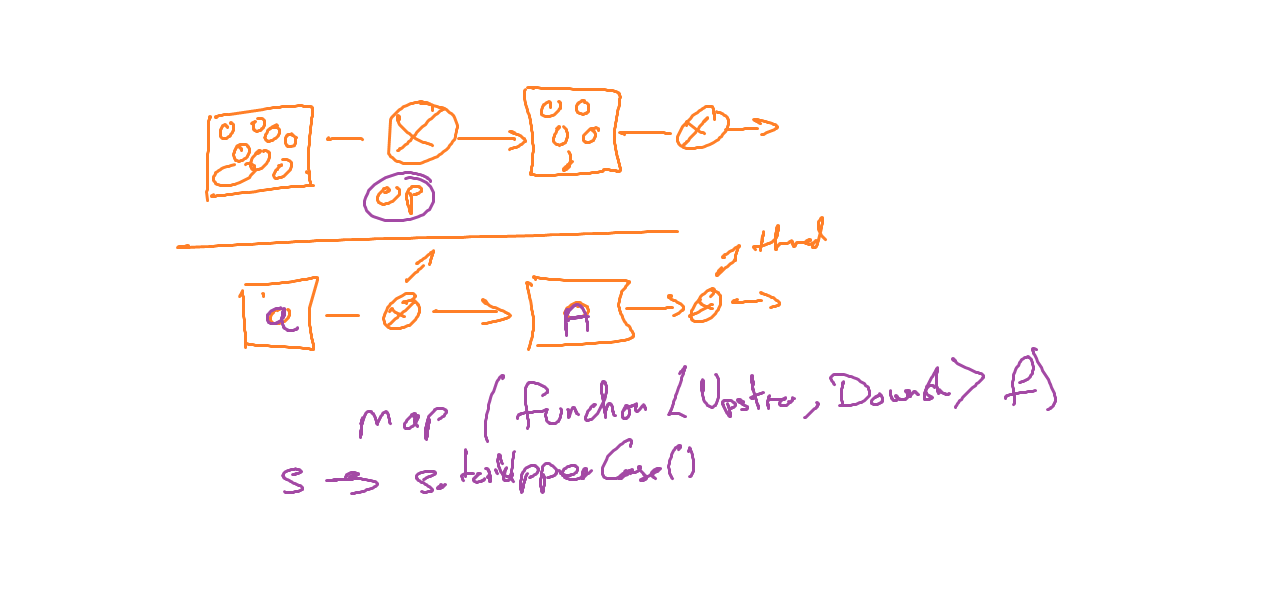 op
thread
a A
map (function <Upstre, Downst> f)
s → s.toUpperCase()